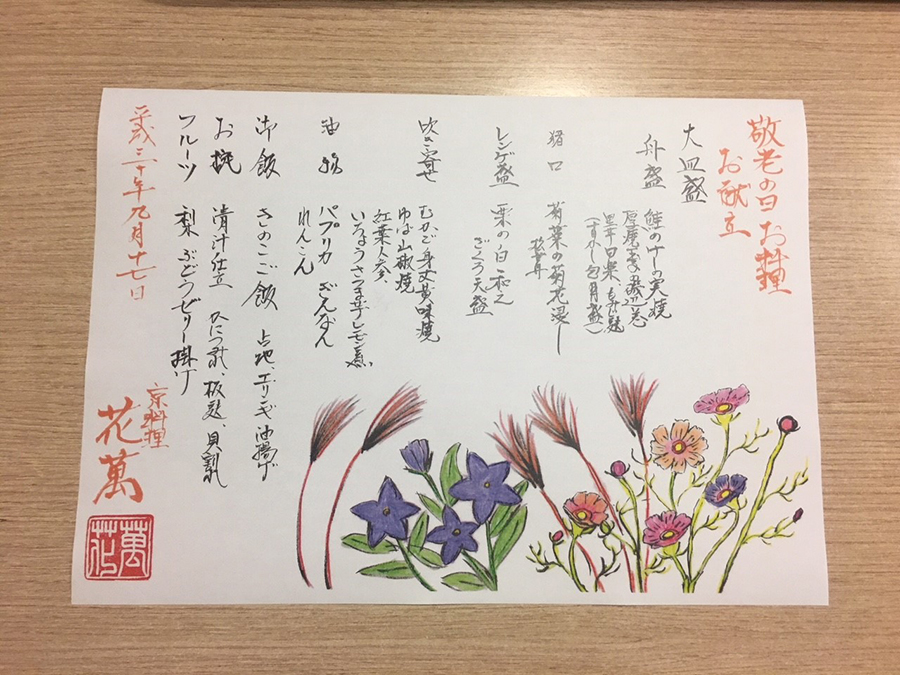 敬老の日 お料理
お献立
大皿盛
舟盛
鮭のけしの実焼
(すかし包丁 月盛)
猪口 菊菜の菊花浸し
レンゲ盛 栗の白和え
ざくろ天盛
吹き寄せ むかご身丈黄味焼
ゆば山椒焼
紅葉人参
いちょうさつま芋レモン煮
油物 パプリカ ぎんなん
れんこん
御飯 きのこご飯 占地、エリンギ、油揚げ
お椀 清汁仕立 板麩、貝割れ
フルーツ 梨 ぶどうゼリー掛け
平成三十年九月十七日
京料理
花萬
花萬